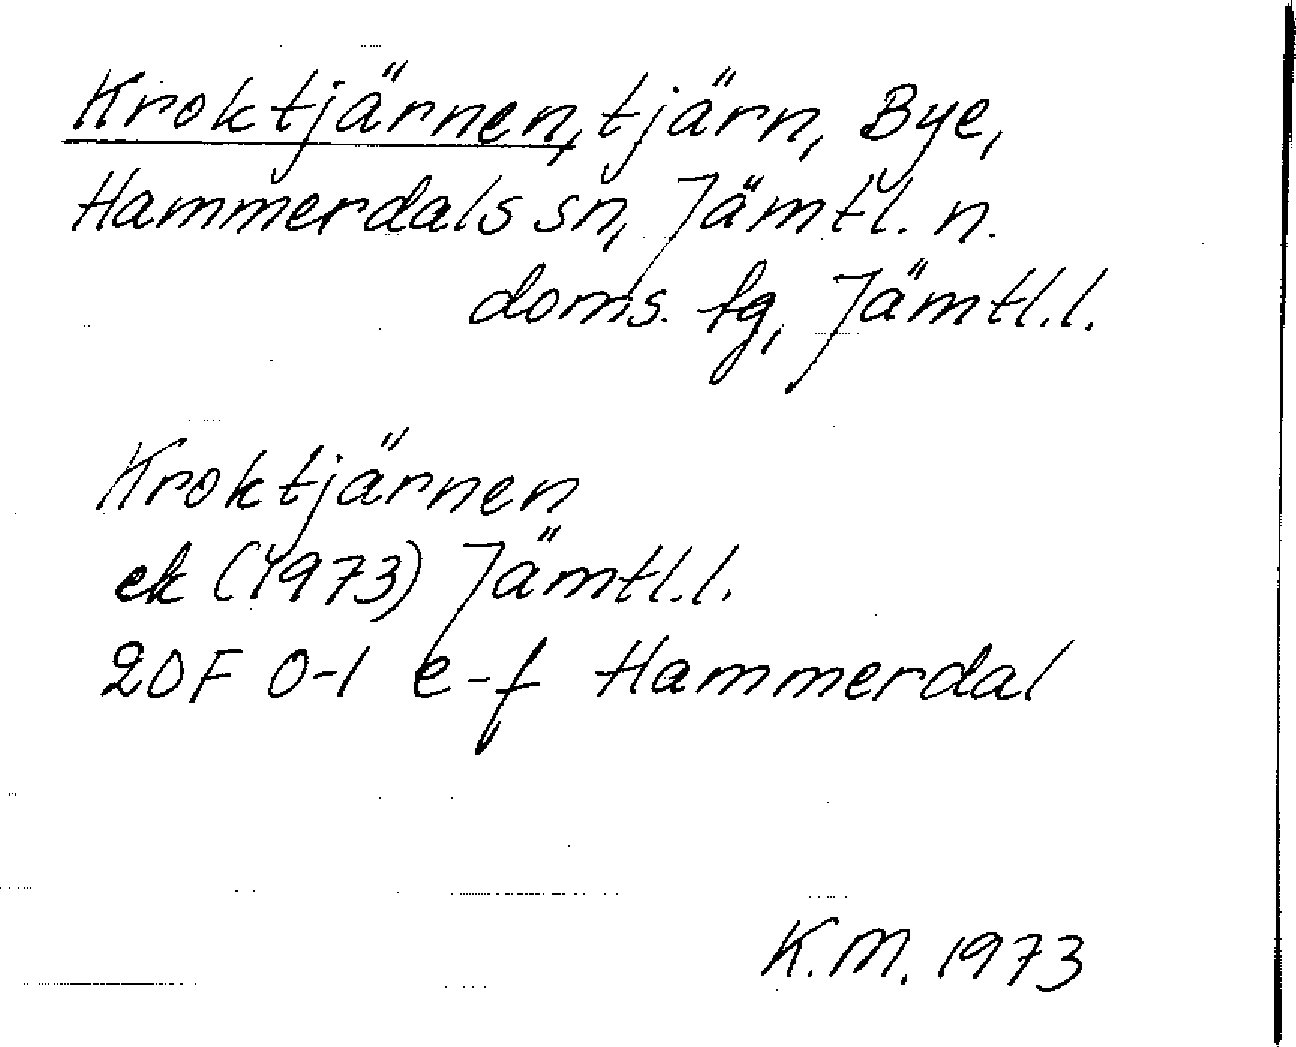 Kroktjärnen, tjärn, Bye,
Hammerdals sn, Jämtl. n.
doms. fg, Jämtl.l.
Kroktjärnen
ek (1973) Jämtl.l.
20F 0-1 e-f Hammerdal
K.M. 1973